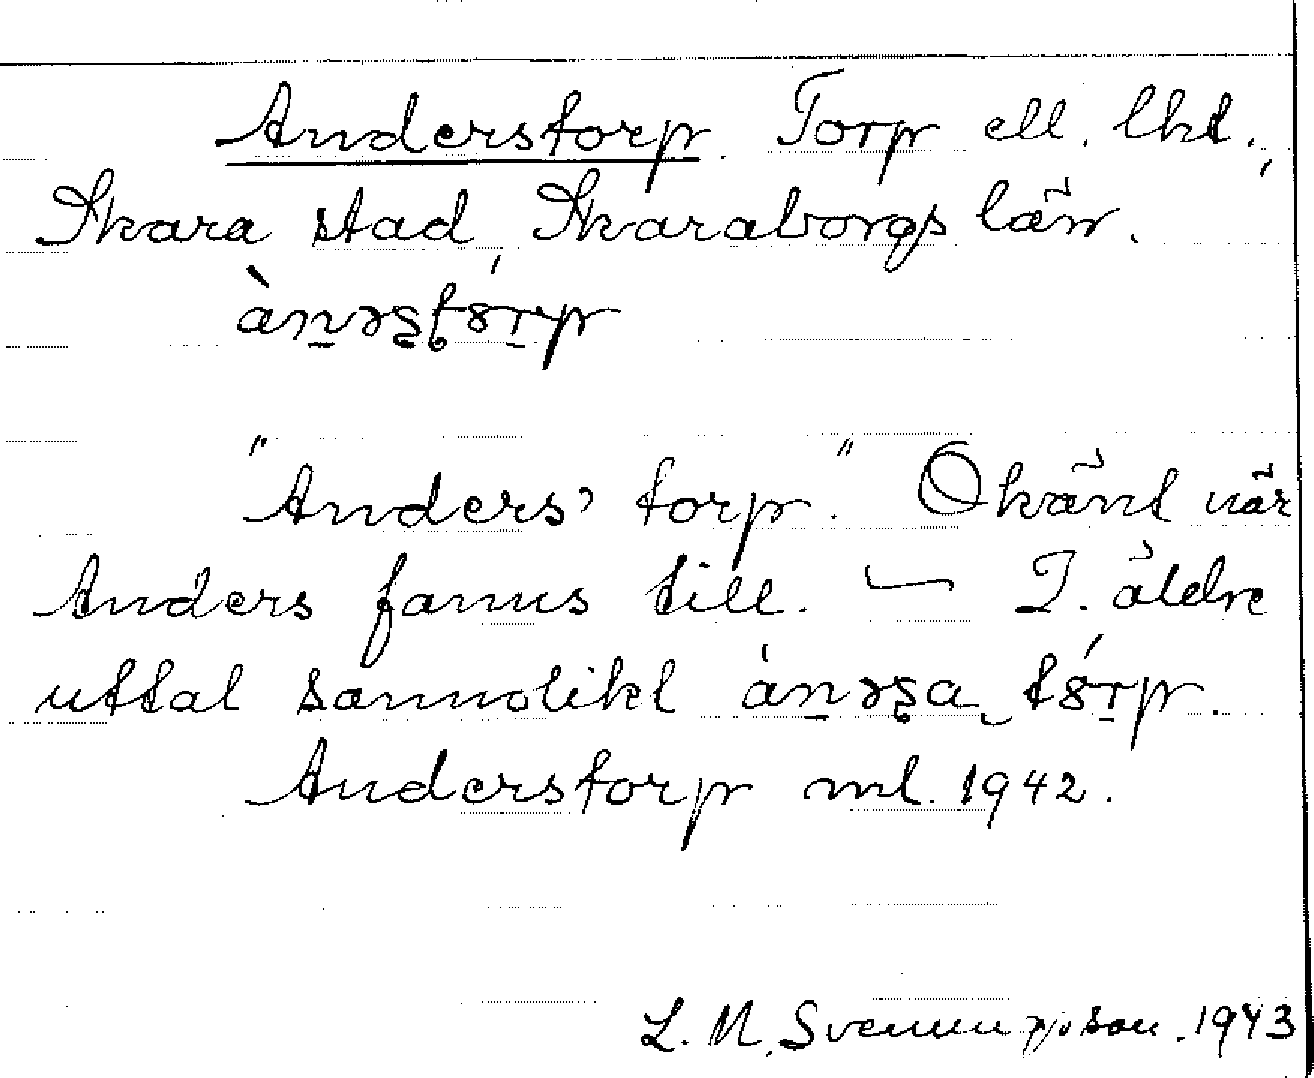 Anderstorp. Torp ell. lht.,
Skara stad, Skaraborgs län.
"Anders' torp." Okänt när
Anders fanns till. — I äldre
uttal sannolikt
Anderstorp ml. 1942.
L. M. Svenungsson. 1943